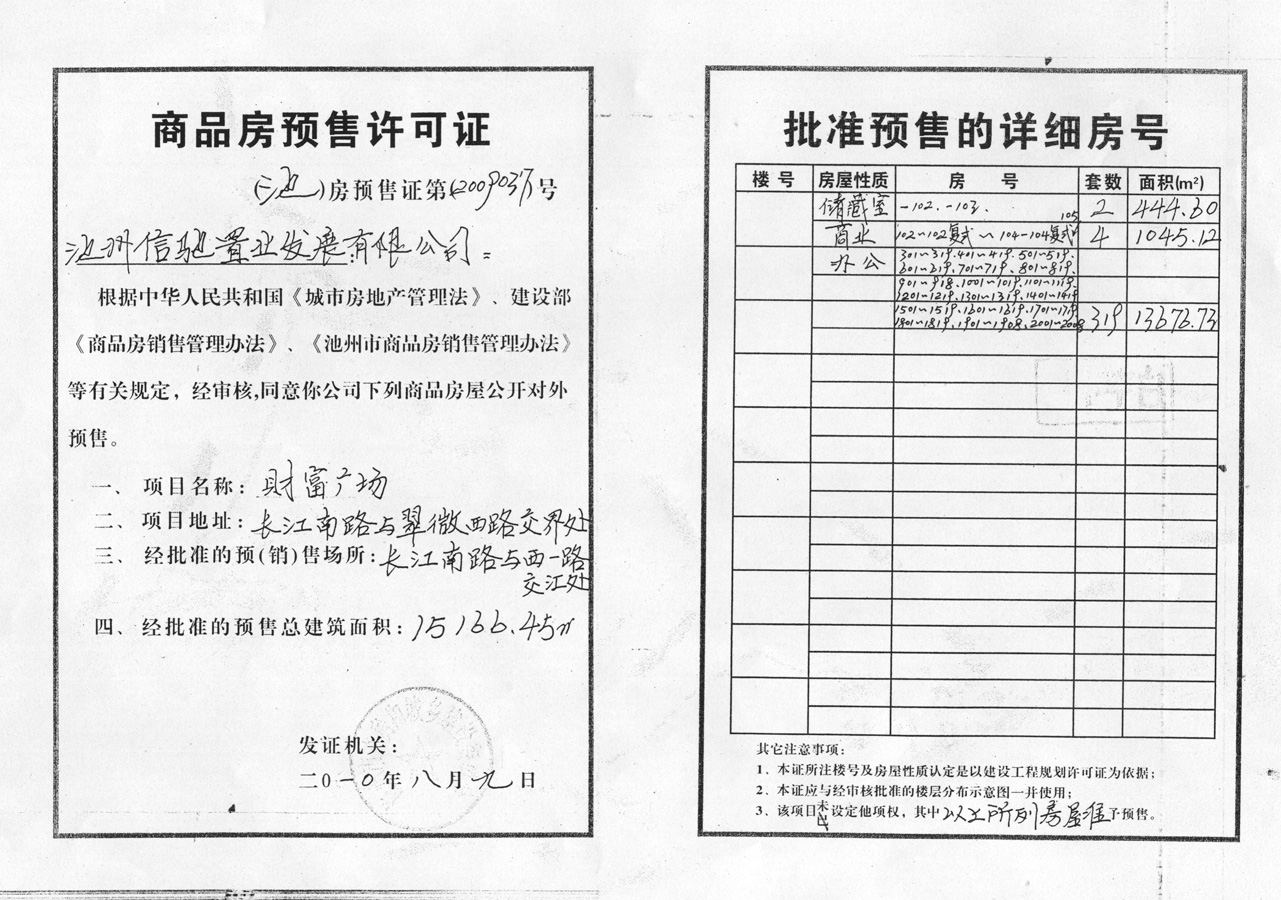 商品房预售许可证
(池)房预售证第(2009037)号
池州信驰置业发展有限公司:
根据中华人民共和国《城市房地产管理法》、建设部
《商品房销售管理办法》、《池州市商品房销售管理办法》
等有关规定，经审核,同意你公司下列商品房屋公开对外
预售。
一、项目名称：财富广场
二、项目地址：长江南路与翠微西路交界处
三、经批准的预(销)售场所：长江南路与西一路
交汇处
四、经批准的预售总建筑面积：15166.45㎡
发证机关：
二0一0年八月九日
批准预售的详细房号
楼号 房屋性质 房号 套数 面积(m²)
储藏室 -102.-103. 2 444.60
商业 102~102复式~104-104复式 105 4 1045.12
办公 301~319.401~419.501~519.
601~619.701~719.801~819.
901~918.1001~1019.1101~1119.
1201~1219.1301~1319.1401~1419
1501~1519.1601~1619.1701~1719
1801~1819.1901~1908.2001~2008 319 13676.73
其它注意事项：
1、本证所注楼号及房屋性质认定是以建设工程规划许可证为依据；
2、本证应与经审核批准的楼层分布示意图一并使用；
3、该项目未设定他项权，其中以上所列房屋准予预售。